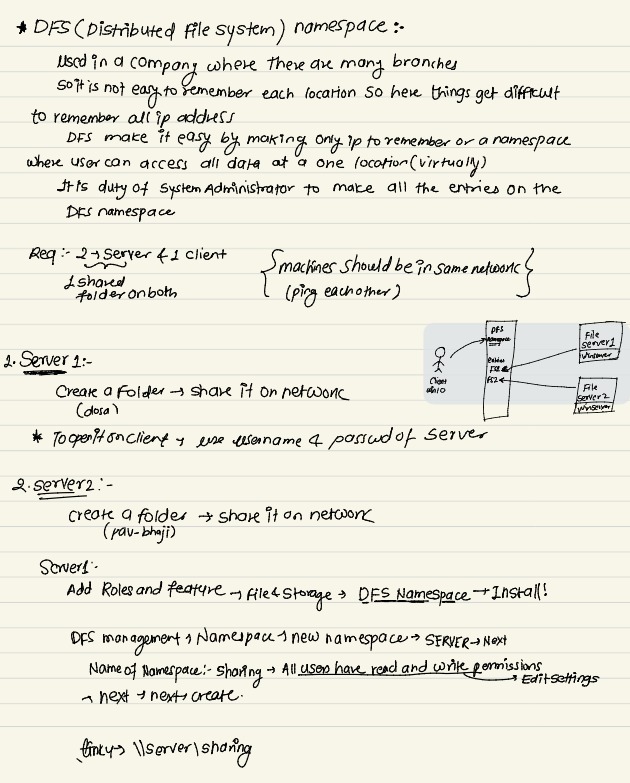 * DFS (Distributed File System) namespace :-
Used in a company where there are many branches
So it is not easy to remember each location so here things get difficult
to remember all ip address
DFS make it easy by making only ip to remember or a namespace
where user can access all data at a one location (virtually)
It is duty of System Administrator to make all the entries on the
DFS namespace
Req :- 2 → Server & 1 client
1 shared
folder on both
{ machines should be in same network }
(ping each other)
DFS
namespace
Entries
FS1
FS2
Client
win10
File
server1
winserver
File
server 2
winserver
1. Server 1:-
Create a Folder → share it on network
(dosa)
* To open it on client → use username & passwd of server
2. server2 :-
create a folder → share it on network
(pav-bhaji)
Server1:-
Add Roles and feature → File & Storage → DFS Namespace → Install!
DFS management → Namespace → new namespace → SERVER → Next
Name of Namespace :- sharing → All users have read and write permissions
→ Edit settings
→ next → next → create.
→ \\server\sharing